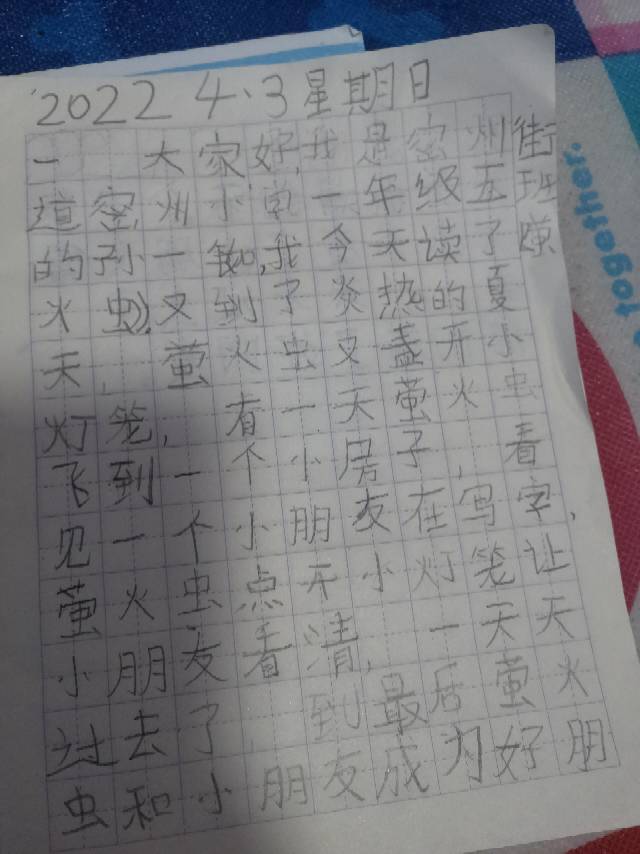 2022 4.3星期日
一 大家好,我是密州街
道密州小学一年级五班
的孙一,我今天读了
火虫》,又到了炎热的夏
天,萤火虫又盏开小
灯笼,有一天萤火虫
飞到一个小房子,看
见一个小朋友在写字,
萤火虫点开小灯笼让
小朋友看清,一天天
过去了,到最后萤火
虫和小朋友成为好朋
together.